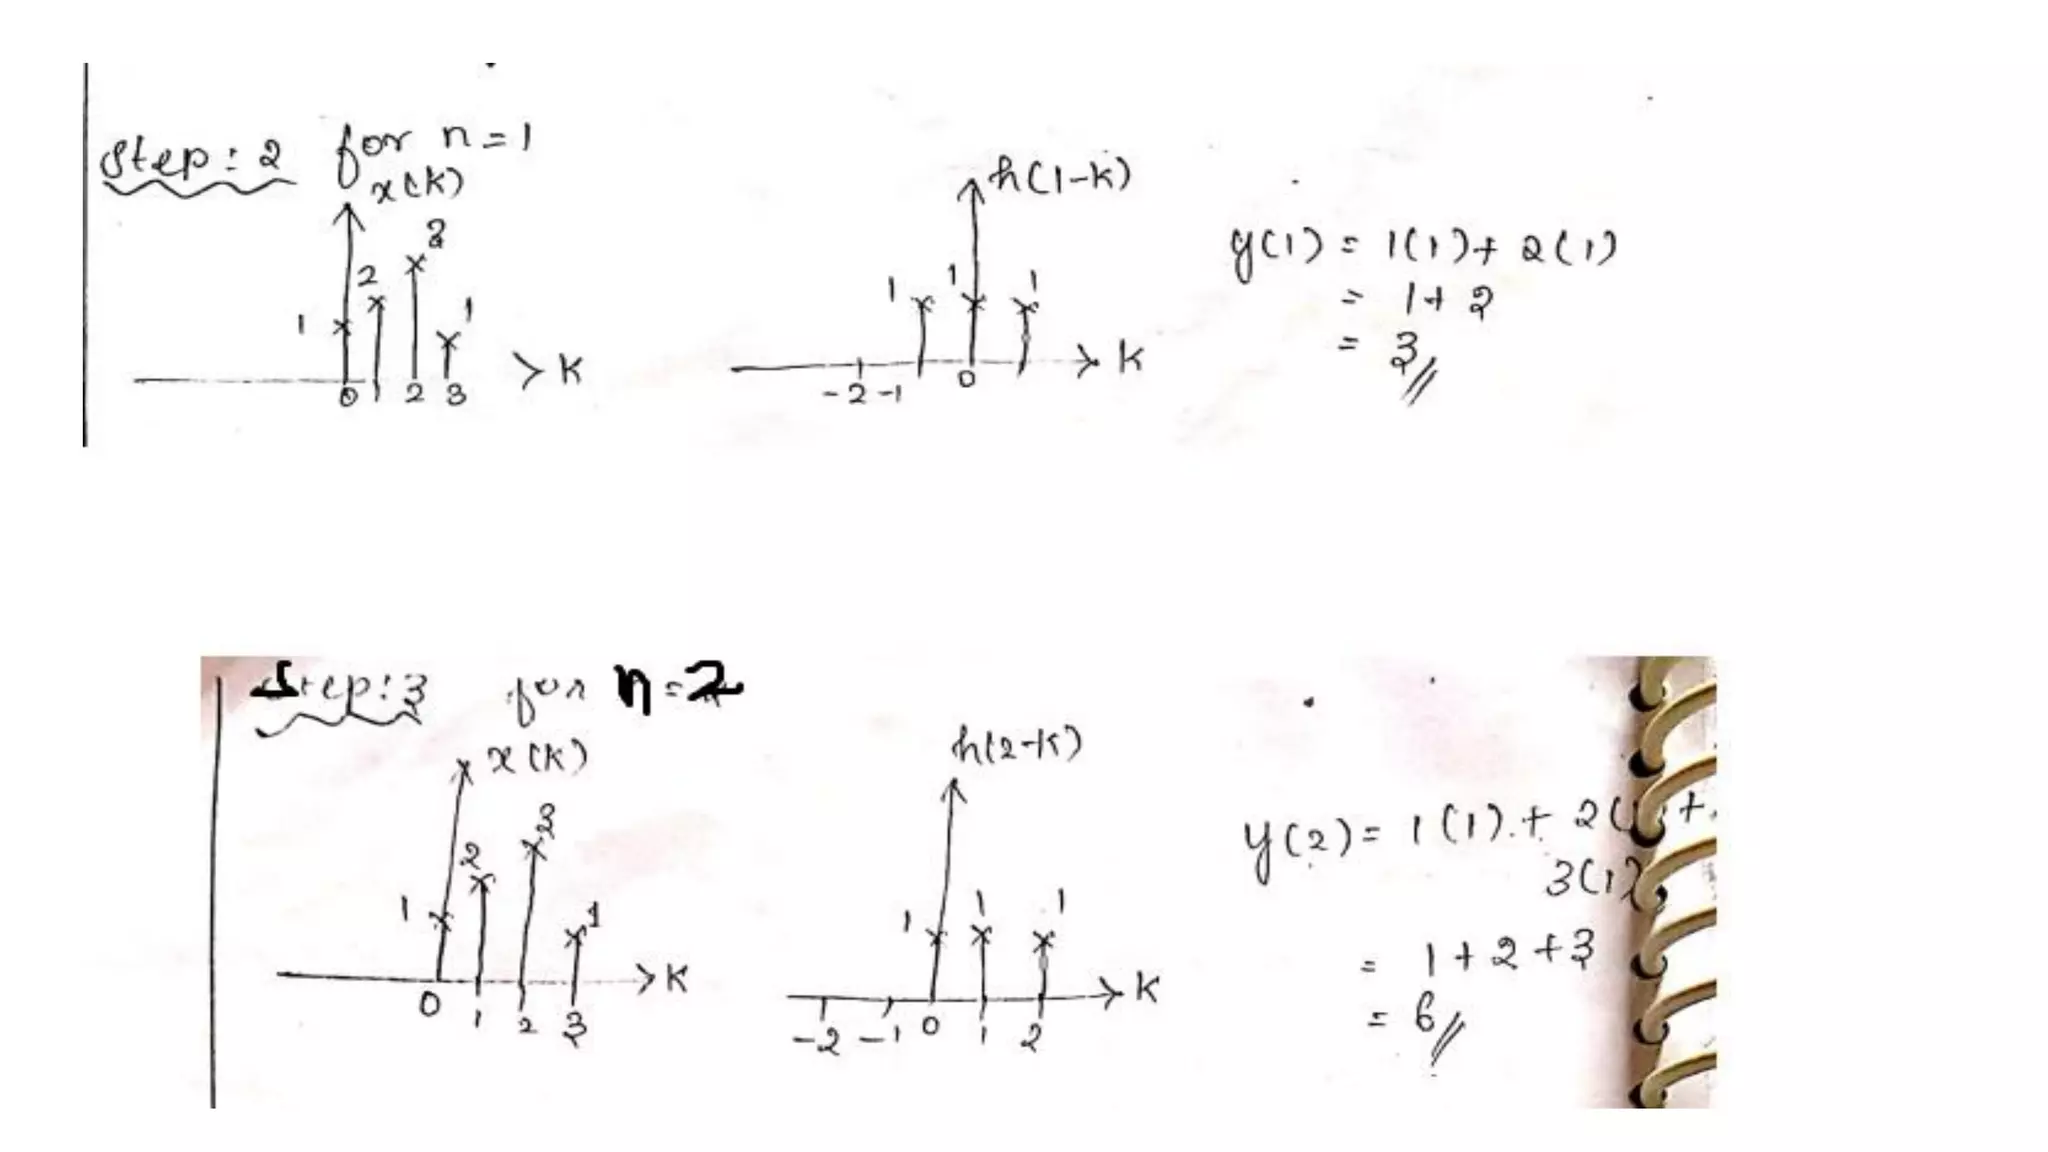 Step: 2 for n=1
x(k)
3
2
1
1
0 1 2 3
> k
h(1-k)
1 1 1
-2 -1 0
k
y(1) = 1(1) + 2(1)
= 1 + 2
= 3
Step: 3 for n=2
x(k)
3
2
1
1
0 1 2 3
> k
h(2-k)
1 1 1
-2 -1 0 1 2
k
y(2) = 1(1) + 2( +
3(1)
= 1 + 2 + 3
= 6